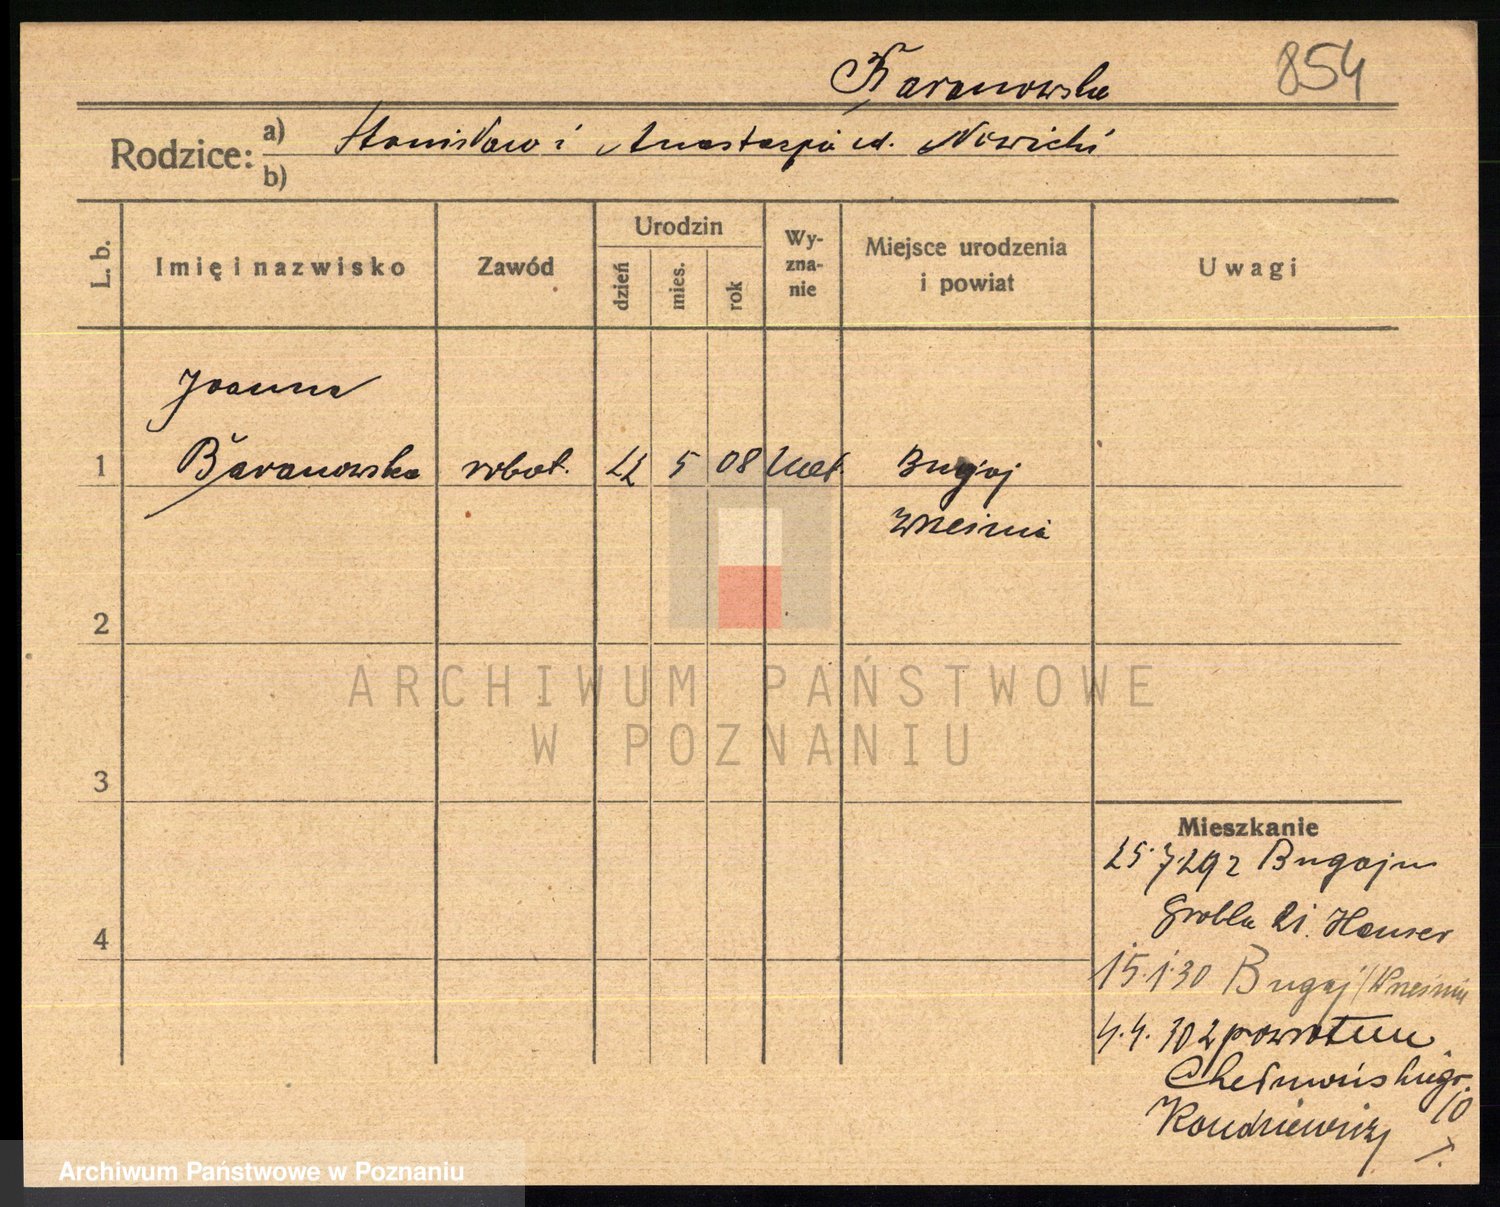 Baranowska
854
Rodzice: a) Stanisław i Anastazja ur. Nowicki
b)
L. b.
Imię i nazwisko
Zawód
Urodzin
dzień
mies.
rok
Wy-
zna-
nie
Miejsce urodzenia
i powiat
Uwagi
Joanna
1 Baranowska robot. 22 5 08 kat. Bugaj
Września
2
ARCHIWUM PAŃSTWOWE
W POZNANIU
3
Mieszkanie
25.7.29 z Bugaju
Grobla 21. Hauser
4
15.1.30 Bugaj/Września
4.4.30 z powrotem
Chełmońskiego
10
Archiwum Państwowe w Poznaniu